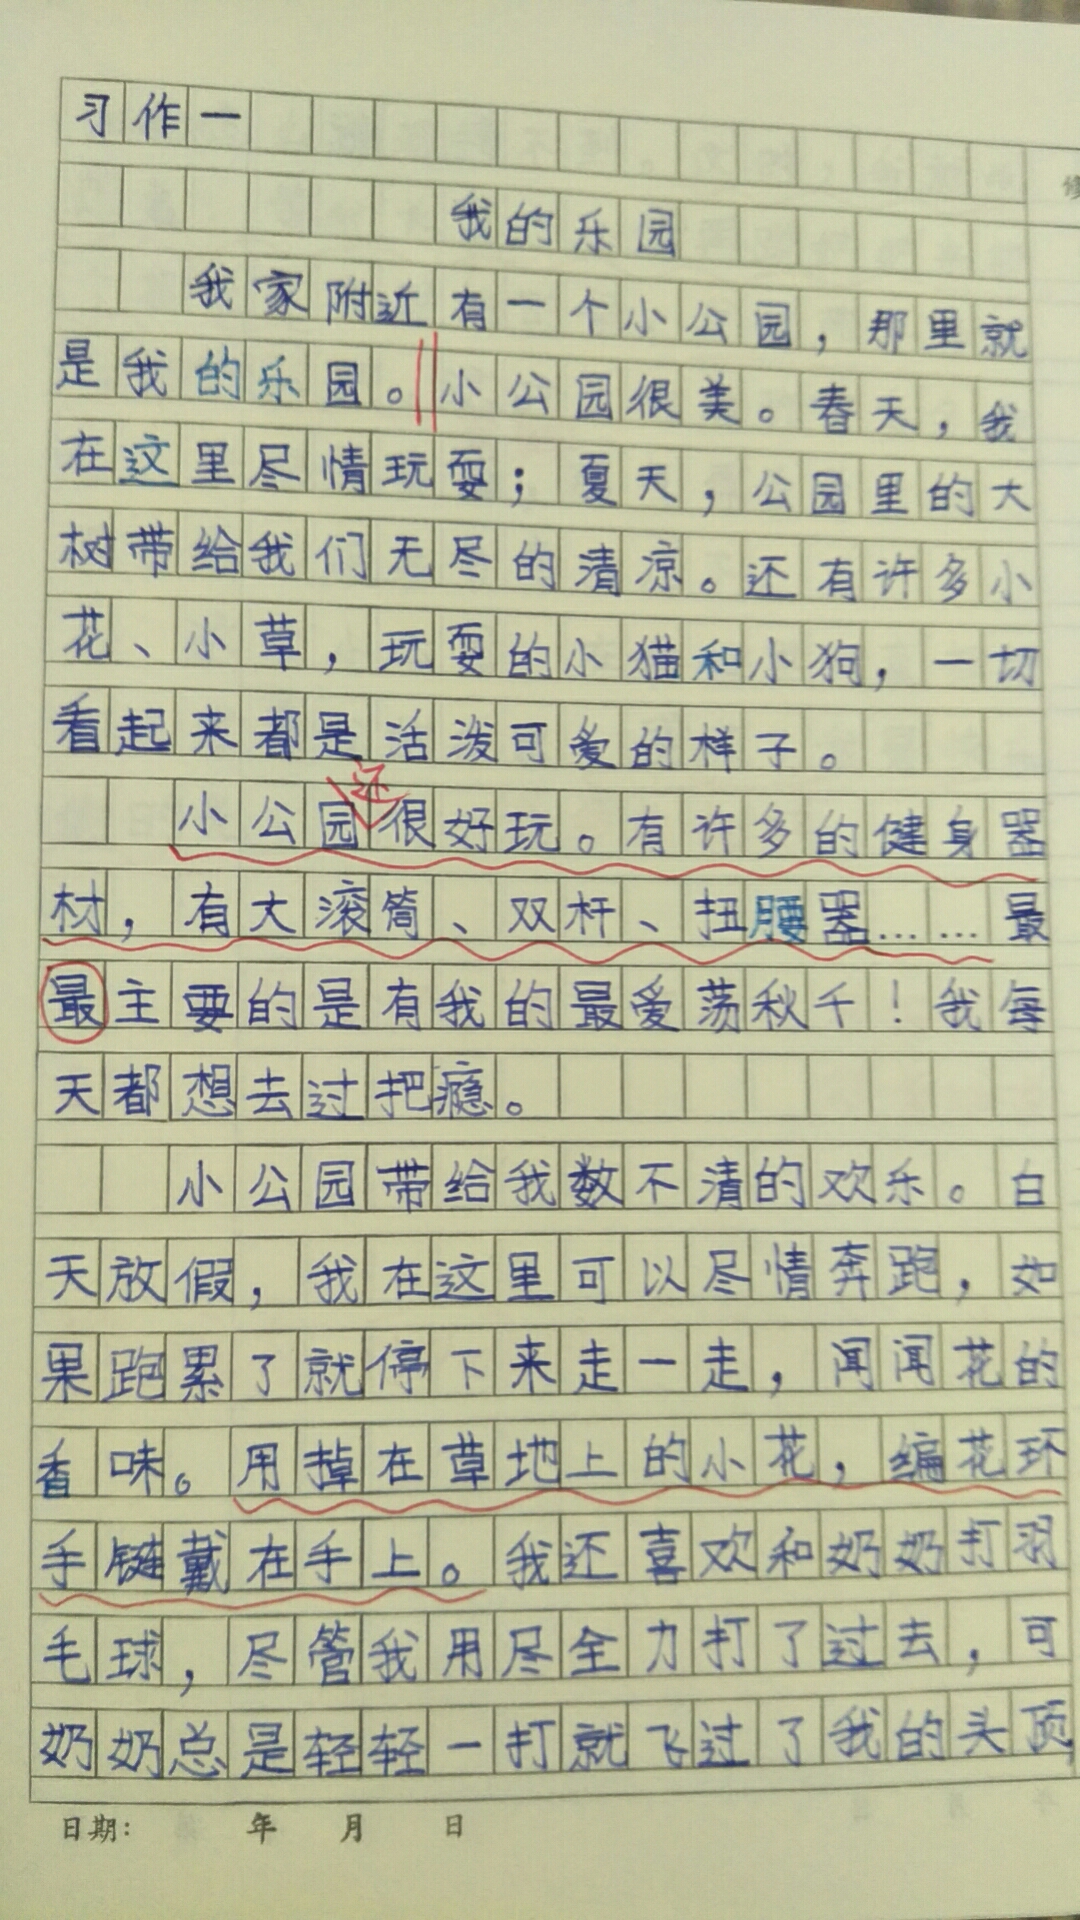 习作一
我的乐园
我家附近有一个小公园，那里就
是我的乐园。小公园很美。春天，我
在这里尽情玩耍；夏天，公园里的大
树带给我们无尽的清凉。还有许多小
花、小草，玩耍的小猫和小狗，一切
看起来都是活泼可爱的样子。
还
小公园很好玩。有许多的健身器
材，有大滚筒、双杆、扭腰器……最
最主要的是有我的最爱荡秋千！我每
天都想去过把瘾。
小公园带给我数不清的欢乐。白
天放假，我在这里可以尽情奔跑，如
果跑累了就停下来走一走，闻闻花的
香味。用掉在草地上的小花，编花环
手链戴在手上。我还喜欢和奶奶打羽
毛球，尽管我用尽全力打了过去，可
奶奶总是轻轻一打就飞过了我的头顶，
日期： 年 月 日